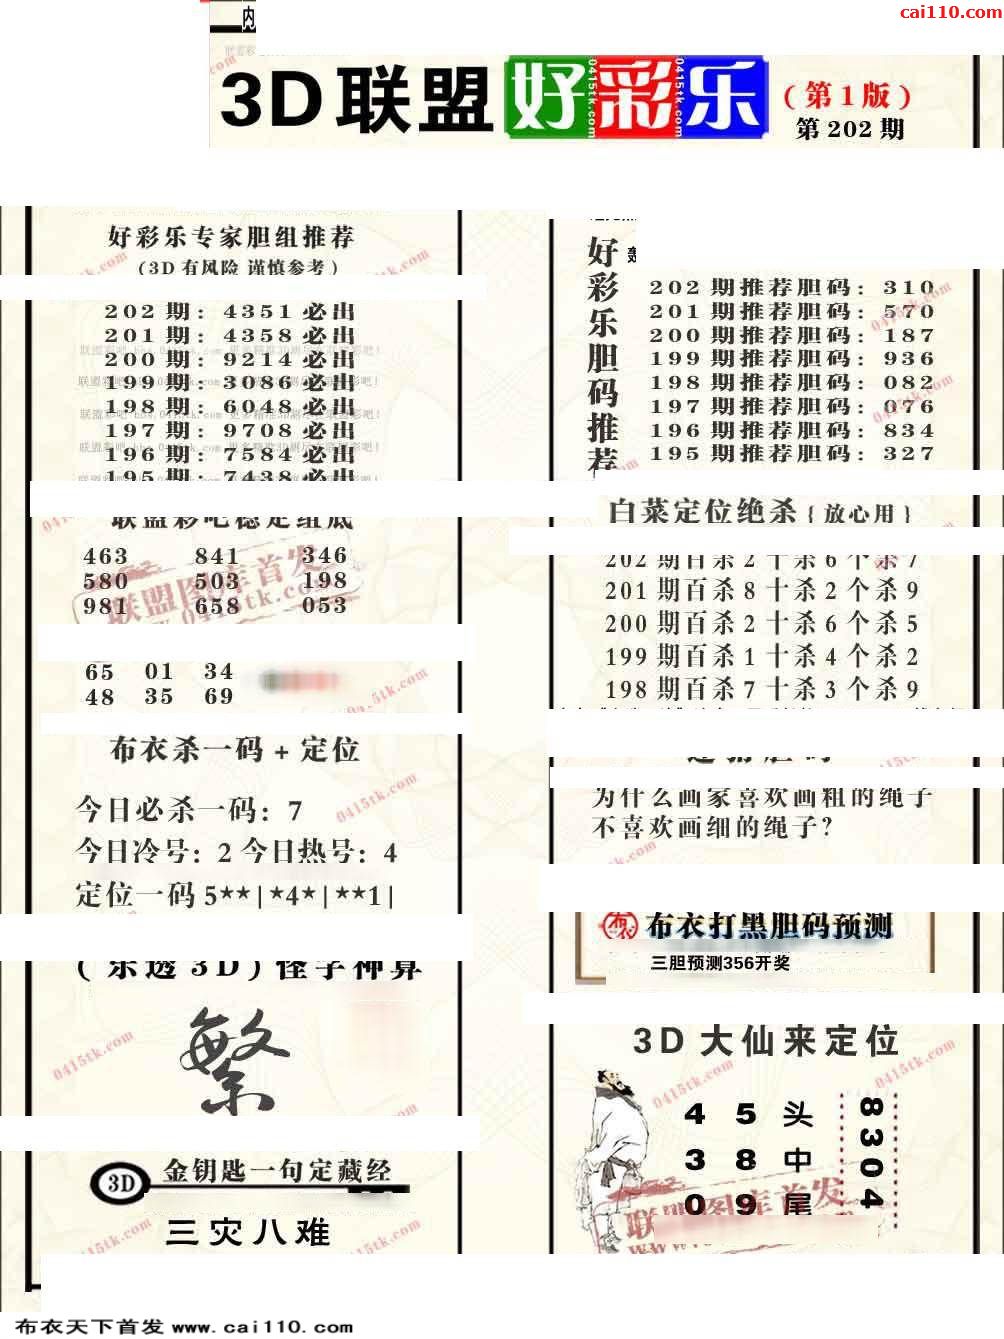 cai110.com
内
3D联盟 好彩乐 (第1版)
第202期
好彩乐专家胆组推荐
(3D有风险 谨慎参考)
202期: 4351必出
201期: 4358必出
200期: 9214必出
199期: 3086必出
198期: 6048必出
197期: 9708必出
196期: 7584必出
195期: 7438必出
联盟彩吧稳定组底
463 841 346
580 503 198
981 658 053
65 01 34
48 35 69
布衣杀一码+定位
今日必杀一码: 7
今日冷号: 2 今日热号: 4
定位一码 5**|*4*|**1|
(乐透3D)怪字神算
繁
3D 金钥匙一句定藏经
三灾八难
好彩乐胆码推荐
202期推荐胆码: 310
201期推荐胆码: 570
200期推荐胆码: 187
199期推荐胆码: 936
198期推荐胆码: 082
197期推荐胆码: 076
196期推荐胆码: 834
195期推荐胆码: 327
白菜定位绝杀{放心用}
202期百杀2十杀6个杀7
201期百杀8十杀2个杀9
200期百杀2十杀6个杀5
199期百杀1十杀4个杀2
198期百杀7十杀3个杀9
为什么画家喜欢画粗的绳子
不喜欢画细的绳子?
布衣 布衣打黑胆码预测
三胆预测356开奖
3D大仙来定位
4 5 头
3 8 中
0 9 尾
8304
联盟图库首发
0415tk.com
布衣天下首发 www.cai110.com